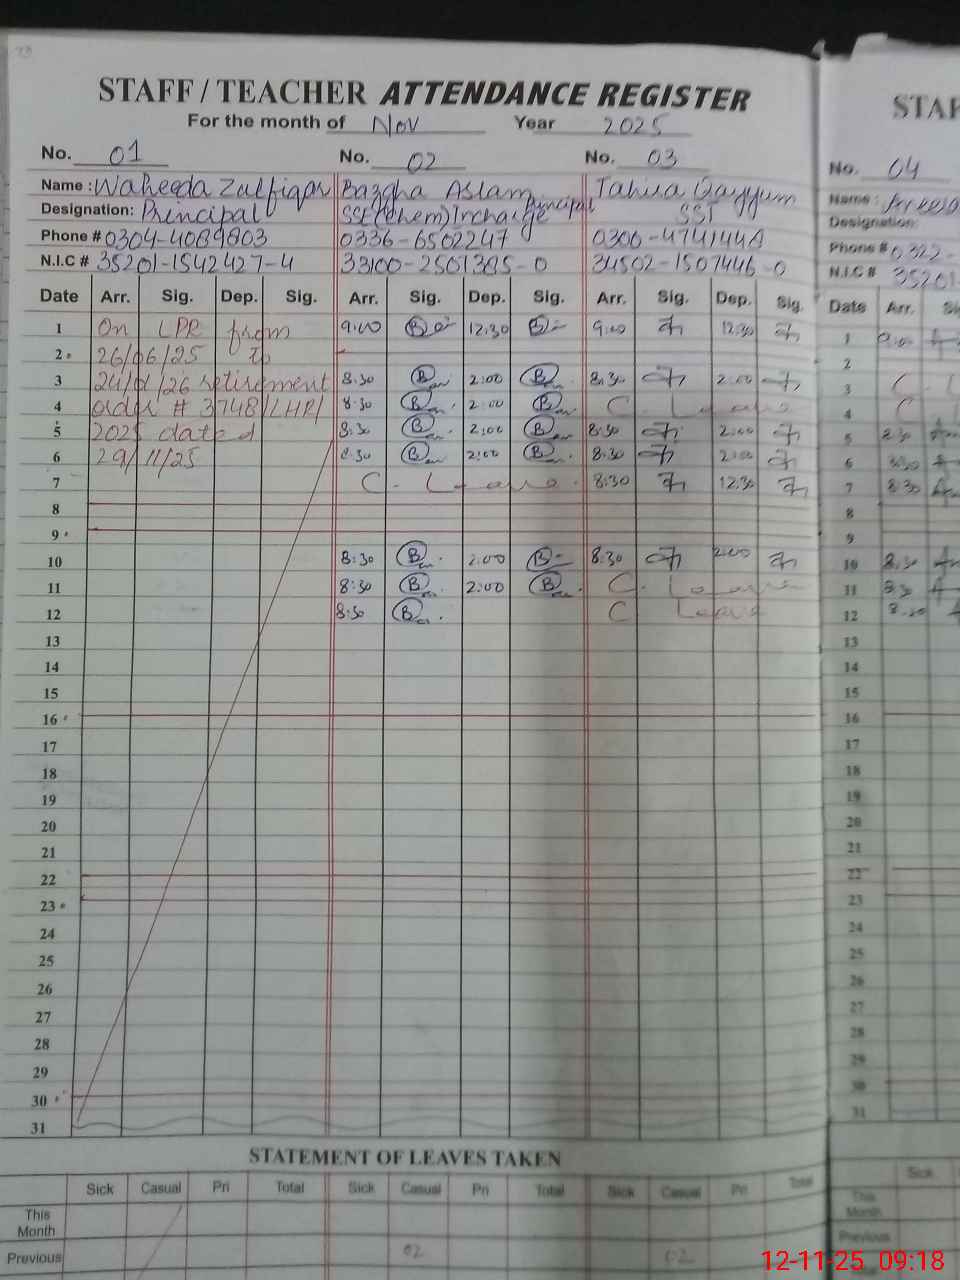 STAFF / TEACHER ATTENDANCE REGISTER
For the month of Nov Year 2025
No. 01 No. 02 No. 03
Name : Waheeda Zulfiqar Bazgha Aslam Tahira Qayyum
Designation: Principal SSE(Chem)Incharge Principal SST
Phone # 0304-4089803 0336-6502247 0306-4741448
N.I.C # 35201-1542427-4 33100-2501385-0 34502-1507446-0
Date Arr. Sig. Dep. Sig. Arr. Sig. Dep. Sig. Arr. Sig. Dep. Sig.
1 On LPR from 9:00 12:30 9:00 12:30
2 26/06/25 to
3 retirement 8:30 2:00 8:30 2:00
4 order # 3748/LHR/ 8:30 2:00 C. Leave
5 2025 dated 8:30 2:00 8:30 2:00
6 29/11/25 8:30 2:00 8:30 2:00
7 C. Leave 8:30 12:30
8
9
10 8:30 2:00 8:30 2:00
11 8:30 2:00 C. Leave
12 8:30 C Leave
13
14
15
16
17
18
19
20
21
22
23
24
25
26
27
28
29
30
31
STATEMENT OF LEAVES TAKEN
Sick Casual Pri Total Sick Casual Pri Total Sick Casual Pri Total
This Month
Previous 02 02
STAF
No. 04
Name :
Designation:
Phone # 0322-
N.I.C # 35201-
Date Arr. Sig
1 9:00
2
3 C
4 C
5 8:30
6 8:30
7 8:30
8
9
10 8:30
11 8:30
12 8:30
13
14
15
16
17
18
19
20
21
22
23
24
25
26
27
28
29
30
31
Sick
This Month
Previous
12-11-25 09:18